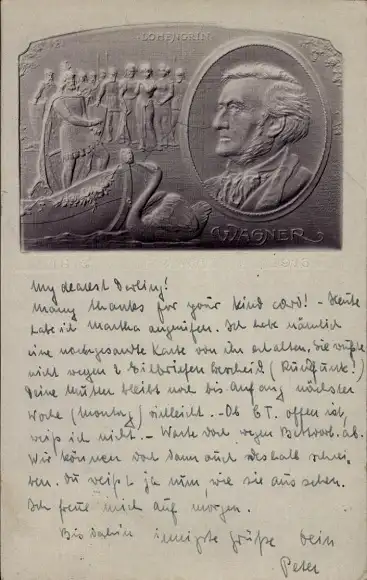 LOHENGRIN
WAGNER
1813 1913
My dearest Darling!
Many thanks for your kind card! - Heute
habe ich Martha angerufen. Ich habe nämlich
eine nachgesandte Karte von ihr erhalten. Sie wußte
nicht wegen 2 Eilbriefen Bescheid (Rückfunk!)
Deine Mutter bleibt noch bis Anfang nächster
Woche (Montag) vielleicht. - Ob B.T. offen ist,
weiß ich nicht. - Warte doch wegen ab.
Wir können doch dann auch deshalb schrei-
ben. Du weißt ja nun, wie sie aussehen.
Ich freue mich auf morgen.
Bis dahin innigste Grüße Dein
Peter